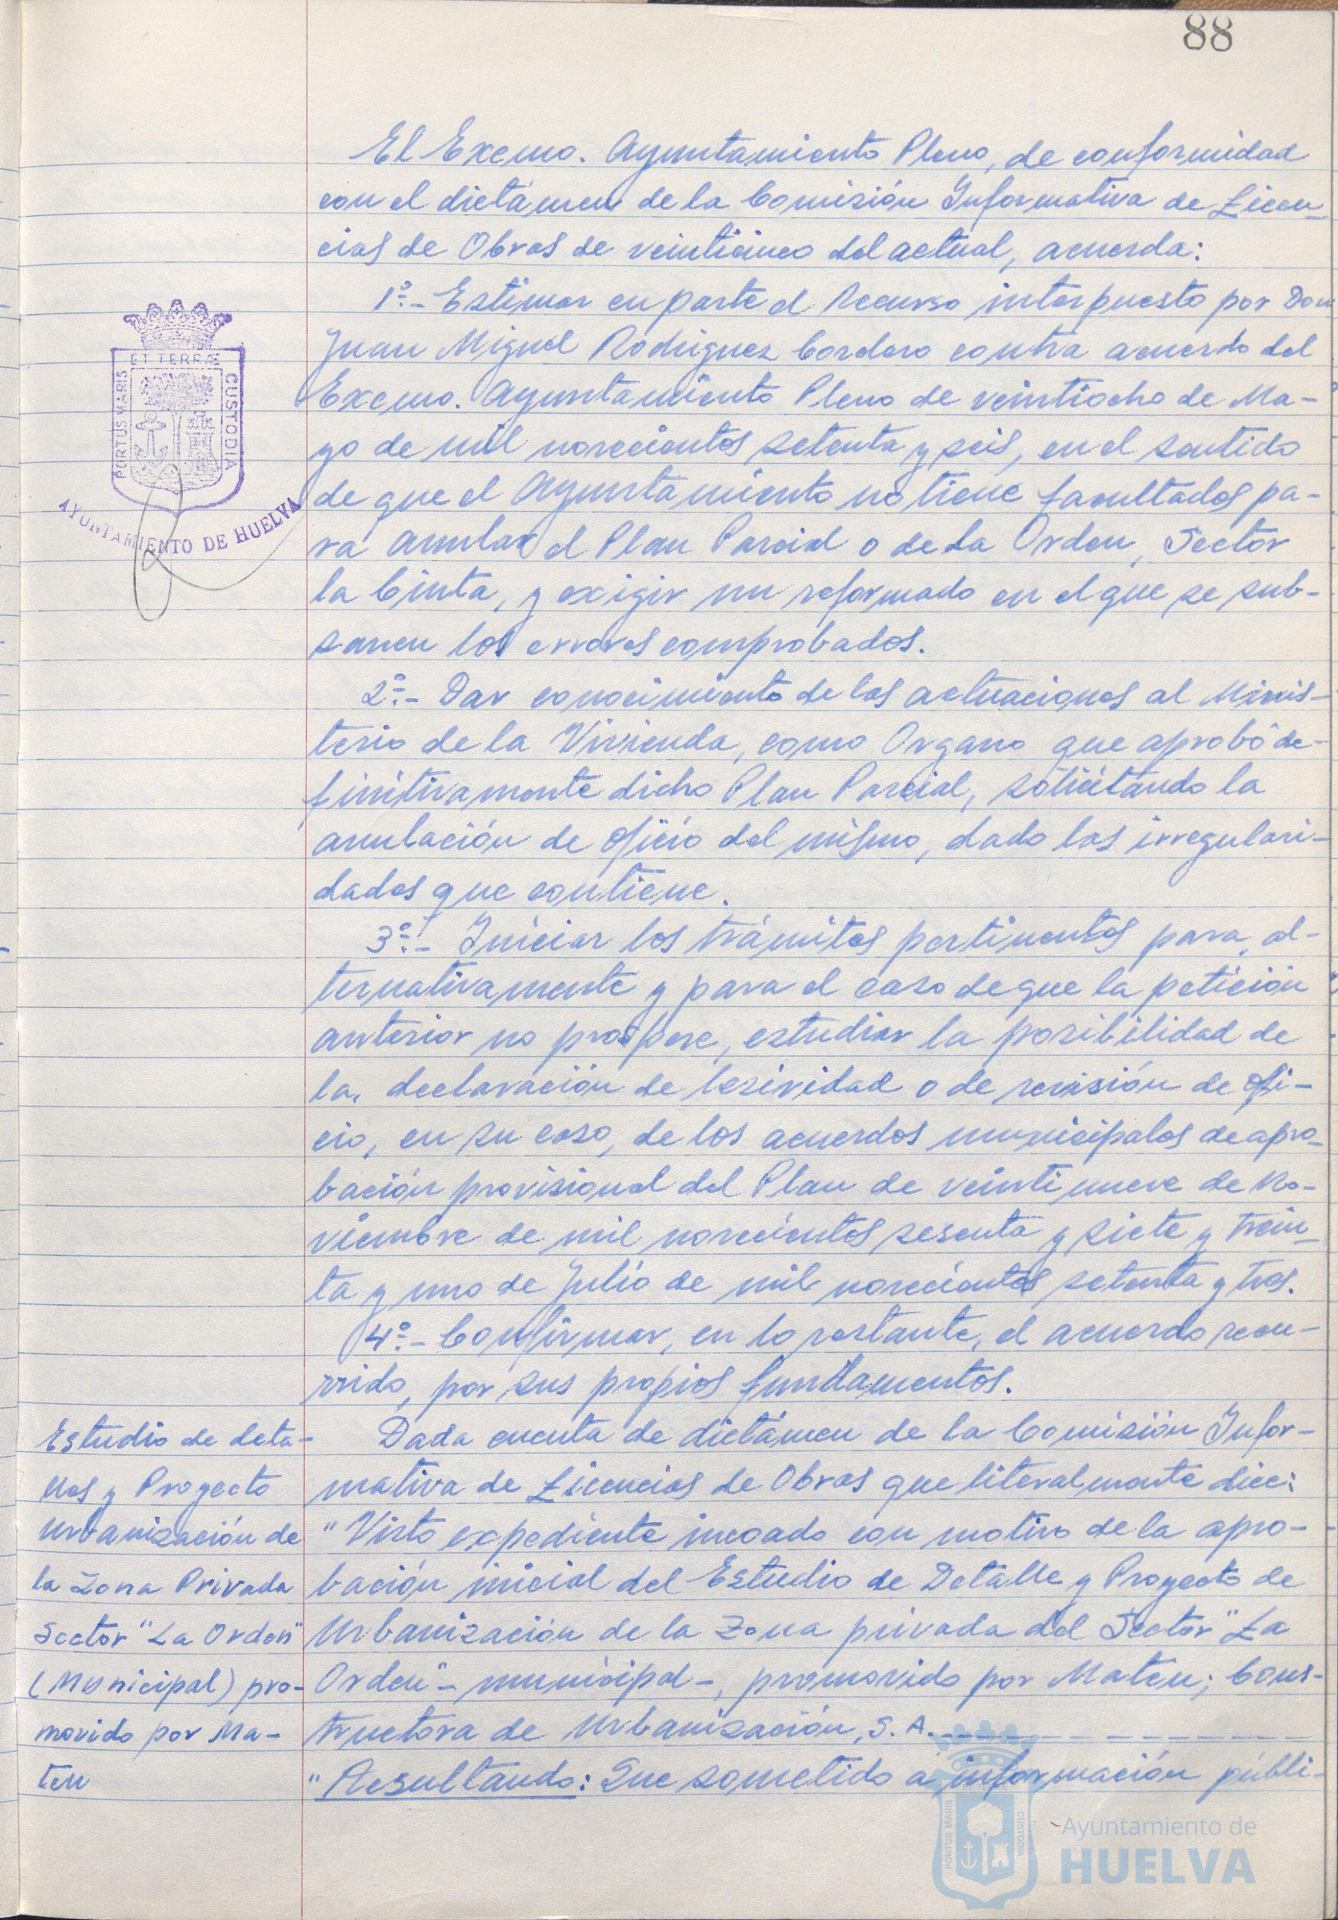 88
El Excmo. Ayuntamiento Pleno, de conformidad
con el dictámen de la Comisión Informativa de Licen-
cias de Obras de veinticinco del actual, acuerda:
1º.- Estimar en parte el recurso interpuesto por Don
Juan Miguel Rodriguez Cordero contra acuerdo del
Excmo. Ayuntamiento Pleno de veintiocho de Ma-
yo de mil novecientos setenta y seis, en el sentido
de que el Ayuntamiento no tiene facultades pa-
ra anular el Plan Parcial o de La Orden, Sector
la Cinta, y exigir un reformado en el que se sub-
sanen los errores comprobados.
2º.- Dar conocimiento de las actuaciones al Minis-
terio de la Vivienda, como Organo que aprobó de-
finitivamente dicho Plan Parcial, solicitando la
anulación de oficio del mismo, dado las irregulari-
dades que contiene.
3º.- Iniciar los trámites pertinentes para, al-
ternativamente y para el caso de que la petición
anterior no prospere, estudiar la posibilidad de
la, declaración de lesividad o de revisión de ofi-
cio, en su caso, de los acuerdos municipales de apro-
bación provisional del Plan de veintinueve de No-
viembre de mil novecientos sesenta y siete y trein-
ta y uno de Julio de mil novecientos setenta y tres.
4º.- Confirmar, en lo restante, el acuerdo recu-
rrido, por sus propios fundamentos.
Dada cuenta de dictámen de la Comisión Infor-
mativa de Licencias de Obras que literalmente dice:
"Visto expediente incoado con motivo de la apro-
bación inicial del Estudio de Detalle y Proyecto de
Urbanización de la Zona privada del Sector "La
Orden"- municipal -, promovido por Mateu; Cons-
tructora de Urbanización, S. A. - - - - - - - - - -
"Resultando: Que sometido a información públi-
Estudio de deta-
lles y Proyecto
Urbanización de
la Zona Privada
Sector "La Orden"
(Municipal) pro-
movido por Ma-
teu
PORTUS MARIS
ET TERRÆ
CUSTODIA
AYUNTAMIENTO DE HUELVA
PORTUS MARIS
CUSTODIA
Ayuntamiento de
HUELVA